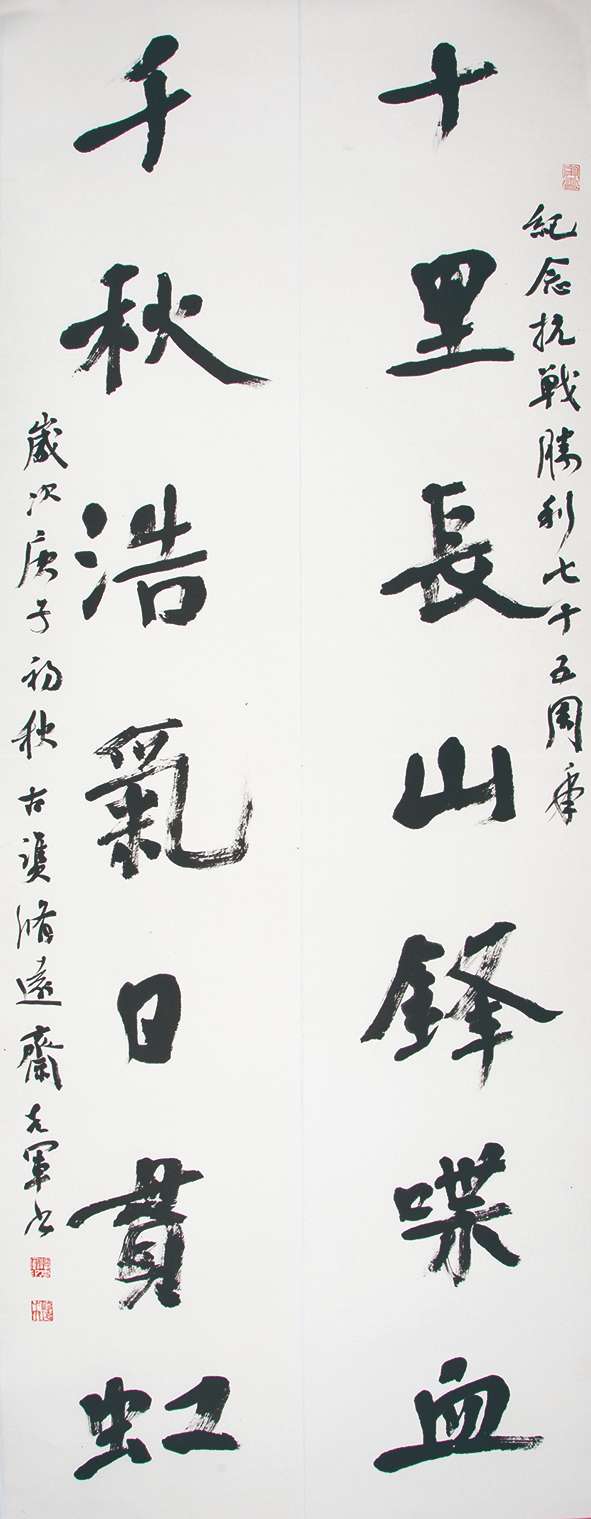 紀念抗戰勝利七十五周年
十里長山鋒喋血
千秋浩氣日貫虹
歲次庚子初秋古濮脩遠齋克軍书